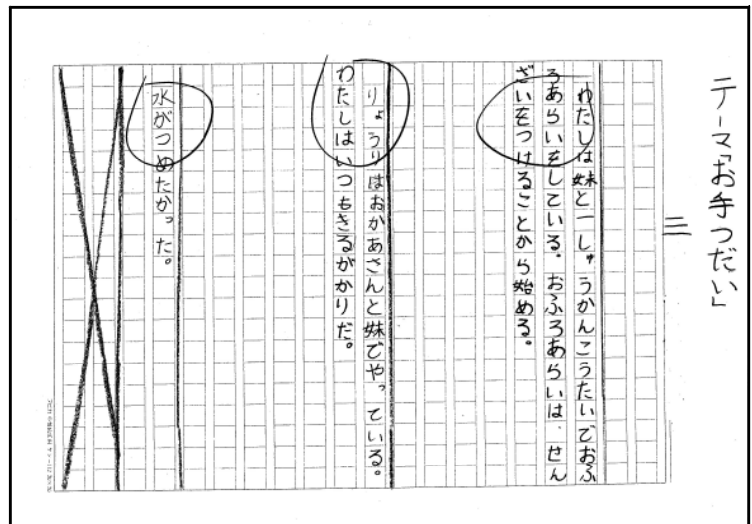 テーマ「お手つだい」
三
わたしは妹と一しゅうかんこうたいでおふ
ろあらいをしている。おふろあらいは、せん
ざいをつけることから始める。
りょうりはおかあさんと妹でやっている。
わたしはいつもきるがかりだ。
水がつめたかった。